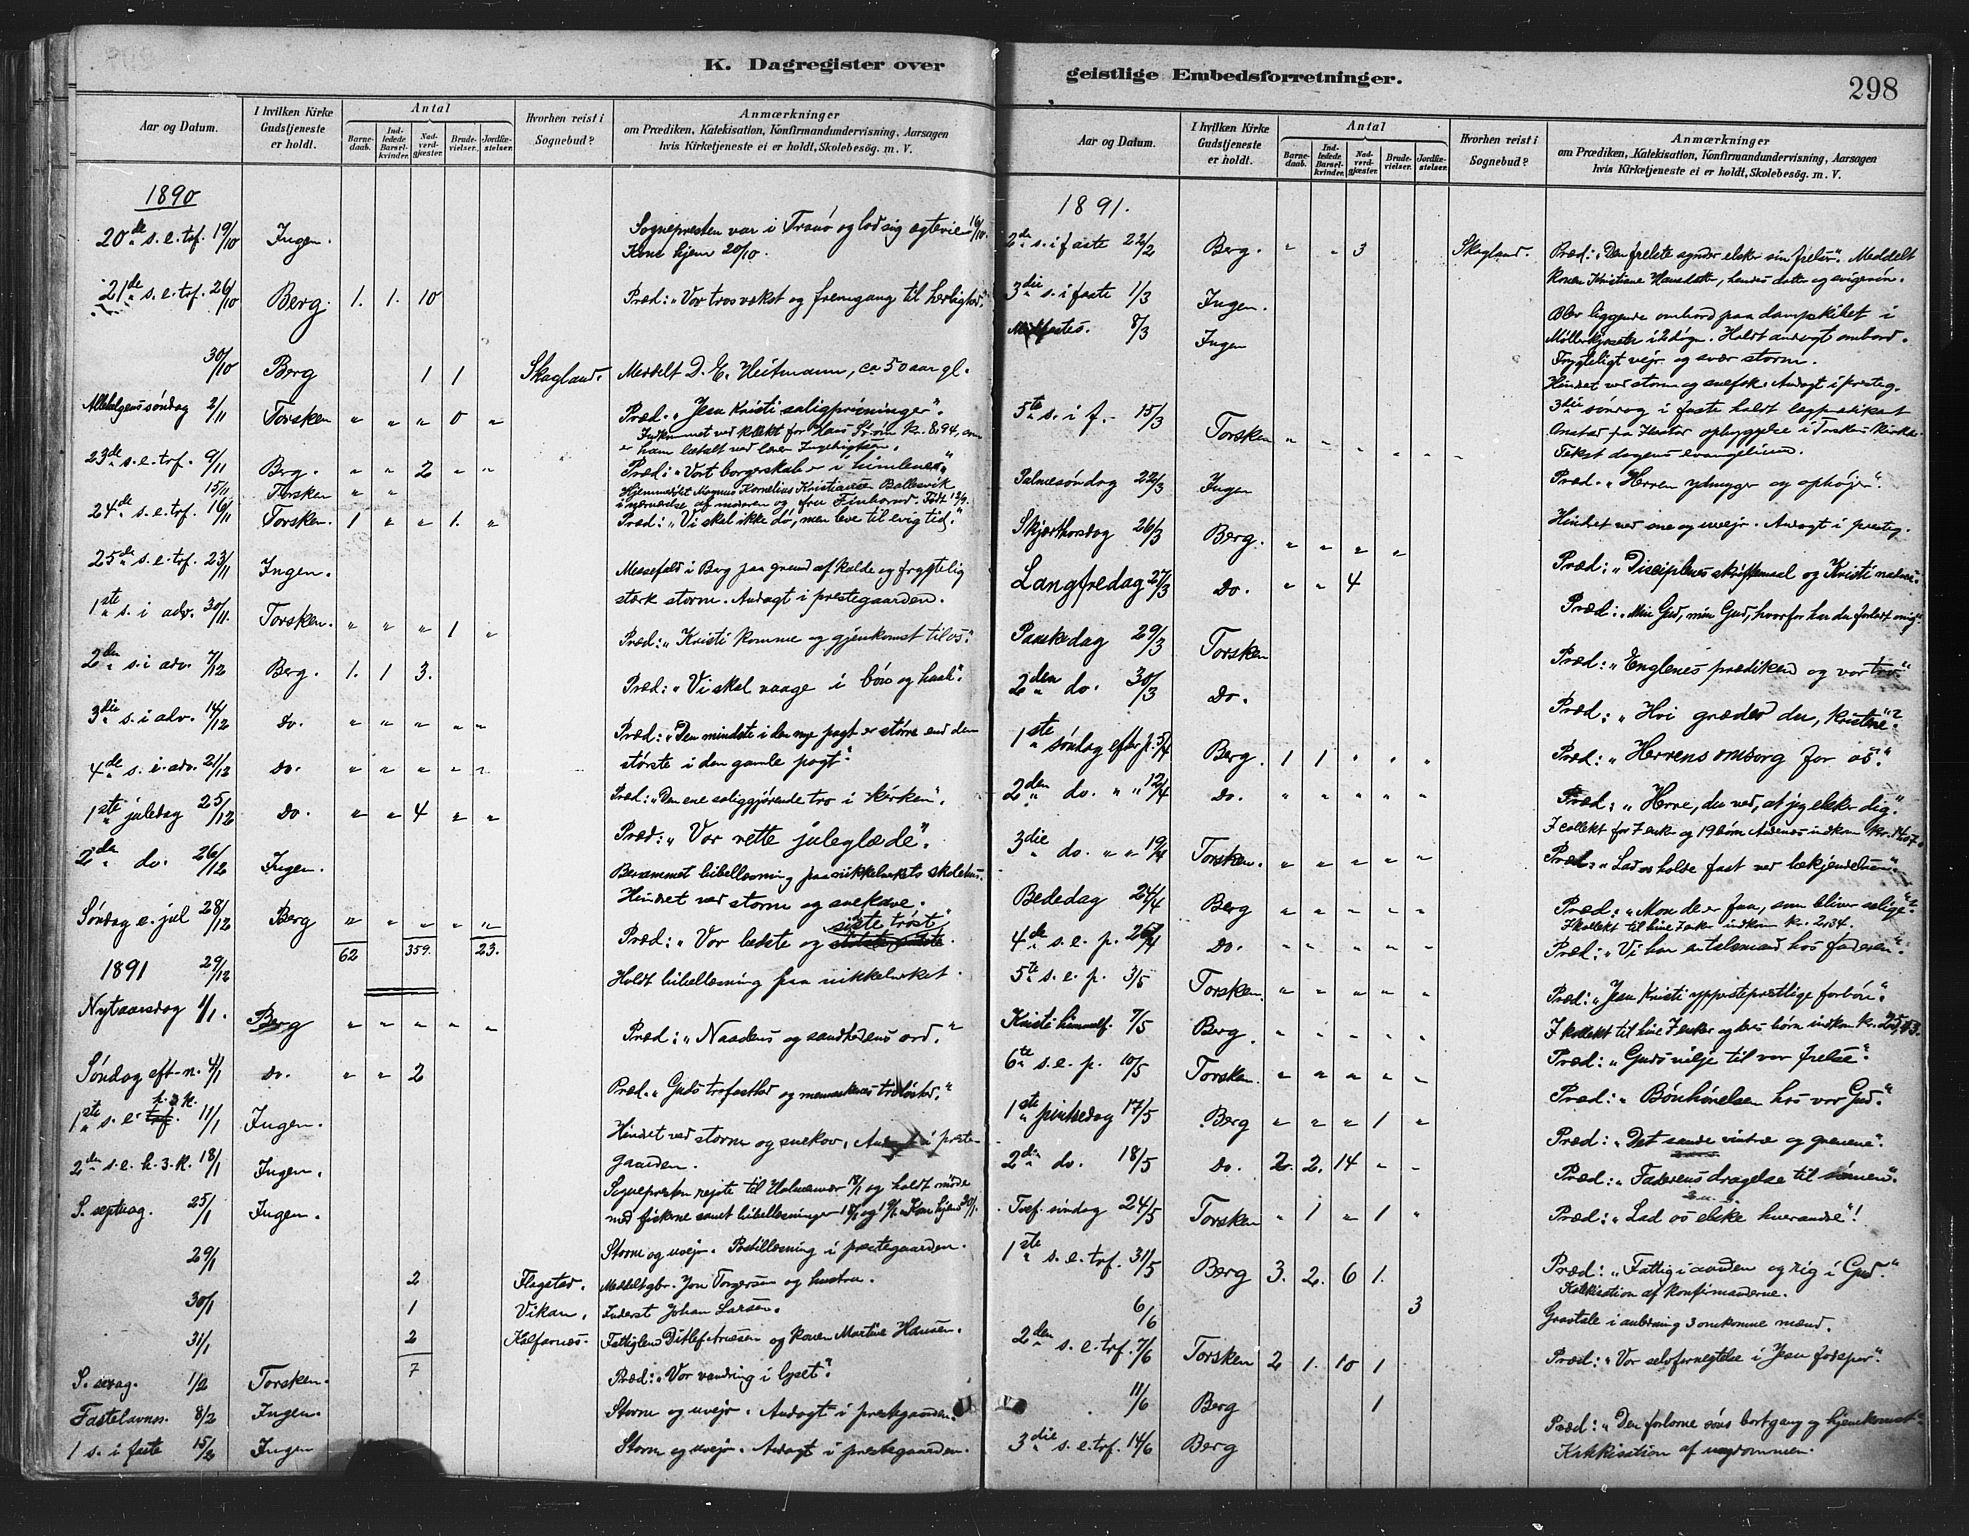 K. Dagregister over
geistlige Embedsforretninger.
298
Aar og Datum.
I hvilken Kirke Gudstjeneste er holdt.
Antal
Barnedaab.
Indledede Barselkvinder.
Nadverdgjæster.
Brudevielser.
Jordfæstelser.
Hvorhen reist i Sognebud?
Anmærkninger
om Prædiken, Katekisation, Konfirmandundervisning, Aarsagen
hvis Kirketjeneste ei er holdt, Skolebesøg. m. V.
1890
20de s. e. trf. 19/10 Ingen. Sognepresten var i Tranø og lod sig ægtevie 16/10.
Kom hjem 20/10.
21de s. e. trf. 26/10 Berg. 1. 1. 10 Præd: „Vor trosvækst og fremgang til herlighed."
30/10 Berg 1 1 Skagland. Meddelt D. E. Heitmann, ca 50 aar gl.
Allehelgenssøndag 2/11 Torsken „ „ „ 0 „ Præd. „Jesu Kristi saligprisninger".
Indkommet ved kollekt for Hans Strøm kr. 8,94, som
er ham betalt ved lærer Ingebrigtsen.
23de s. e. trf. 9/11 Berg. „ „ 2 „ „ Præd: „Vort borgerskab er i himlene."
15/11 Torsken „ „ Hjemmedøbt Magnus Kornelius Kristiansen Ballesvik
i nærværelse af moderen og fru Finborud. Født 12/9.
24de s. e. trf. 16/11 Torsken. 1 „ „ 1. „ Præd: „Vi skal ikke dø, men leve til evig tid."
25de s. e. trf. 23/11 Ingen. Messefald i Berg paa grund af kulde og frygtelig
sterk storm. Andagt i prestegaarden.
1ste s. i adv. 30/11. Torsken. „ „ „ 1 „ Præd: „Kristi komme og gjenkomst til os".
2den s. i adv. 7/12 Berg. 1. 1 3. Præd: „Vi skal vaage i bøn og haab".
3die s. i adv. 14/12 do. „ „ „ „ „ Præd: „Den mindste i den nye pagt er større end den
største i den gamle pagt".
4de s. i. adv. 21/12 do. „ „ „ „ „ Præd: „Den ene saliggjørende tro i kirken".
1ste juledag 25/12 do. „ „ 4 „ „ Præd: „Vor rette juleglæde".
2den do. 26/12 Ingen. Berammet bibellæsning paa nikkelverkets skolehus.
Hindret ved storm og snekave.
Søndag e. jul 28/12 Berg „ „ „ „ „ siste trøst"
Præd: „Vor bedste og
62 359. 23.
1891 29/12 Holdt bibellæsning paa nikkelverket.
Nytaarsdag 1/1. Berg „ „ „ „ „ Præd: „Naadens og sandhedens ord."
Søndag eft. n. 4/1 do. „ „ 2 Præd. „Guds trofasthed og menneskenes troløshed."
1ste s. e. h. 3 k. 11/1 Ingen. Hindret ved storm og snekov. Andagt i preste-
gaarden.
2den s. e. h. 3. k. 18/1 Ingen. Sognepresten rejste til Holmenvær 17/1 og holdt møde
med fiskerne samt bibellæsninger 18/1 og 19/1. Kom hjem 20/1.
S. septuag. 25/1 Ingen. Storm og uvejr. Postillæsning i prestegaarden.
29/1 2 Flagstad. Meddelt gbr. Jon Torgersen og hustru.
30/1 1 Vikan. Inderst Johan Larsen.
31/1 2 Kalfarnes. Fattiglem Ditlef Arnesen og konen Martine Hansen.
7
S. sexag. 1/2 Torsken. Præd: „Vor vandring i lyset".
Fastelavns. 8/2 Ingen. Storm og uvejr. Andagt i prestegaarden.
1 s. i faste 15/2 Ingen Storm og uvejr. Andagt i prestegaarden.
Aar og Datum.
I hvilken Kirke Gudstjeneste er holdt.
Antal
Barnedaab.
Indledede Barselkvinder.
Nadverdgjæster.
Brudevielser.
Jordfæstelser.
Hvorhen reist i Sognebud?
Anmærkninger
om Prædiken, Katekisation, Konfirmandundervisning, Aarsagen
hvis Kirketjeneste ei er holdt, Skolebesøg. m. V.
1891.
2den s. i faste 22/2 Berg. „ „ 3 Skagland. Præd: „Den frelste synder elsker sin frelser". Meddelt
konen Kristiane Hansdatter, hendes datter og svigersøn.
3die s. i faste 1/3 Ingen. Blev liggende ombord paa dampskibet i
8/3 Ingen. Holdt andagt ombord.
Frygteligt vejr og svær storm.
Hindret ved storm og snefok. Andagt i presteg.
5te s. i f. 15/3 Torsken „ „ „ „ „ 3die søndag i faste holdt lægpredikant
Onstad fra opbyggelse i Torskens kirke.
Tekst dagens evangelium.
Palmesøndag 22/3 Ingen Præd. „Herren ydmyger og ophøjer".
Skjærthorsdag 26/3 Berg. „ „ „ „ Hindret ved sne og uvejr. Andagt i presteg.
Langfredag 27/3 do. „ „ 4 Præd: „Disciplenes skriftemaal og Kristi nadver."
Præd: „Min Gud, min Gud, hvorfor har du forladt mig".
Paaskedag 29/3 Torsken Præd: „Englenes prædiken og vor tro."
2den do. 30/3 do. Præd: „Hvi græder du, kristne"?
1ste søndag efter p. 5/4 Berg. 1 1 „ „ „ Præd: „Herrens omsorg for os".
2den do. „ „ 12/4 do. „ „ „ „ „ Præd: „Herre, du ved, at jeg elsker dig."
I collekt for 7 enker og 19 børn Andenes indkom kr. 14,07.
3die do. „ „ 19/4 Torsken. „ „ „ „ „ Præd: „Lad os holde fast ved bekjendelsen".
Bededag 24/4 Berg „ „ „ „ „ Præd: „Mon de er faa, som bliver salige"?
I kollekt til hine 7 enker indkom kr. 2,34.
4de s. e. p. 26/4 do. „ „ „ „ „ Præd: „Vi har en talsmand hos faderen".
5te s. e. p. 3/5 Torsken. „ „ „ „ „ Præd: „Jesu Kristi ypperstepræstlige forbøn".
Kristi himmelf. 7/5 Berg. „ „ „ „ I kollekt til hine 7 enker og deres børn indkom kr.
Præd: „Guds vilje til vor frelse".
6te s. e. p. 10/5 Torsken. „ „ „ „ „ Præd: „Bønhørelsen hos vor Gud."
1ste pintsedag 17/5 Berg „ „ „ 1 „ Præd: „Det sande vintræ og grenene".
2den do. 18/5 do. 2. 2. 14 „ „ Præd: „Faderens dragelse til sønnen."
Tref. søndag 24/5 Torsken „ 1 „ 1 „ Præd: „Lad os elske hverandre"!
1ste s. e. trf. 31/5 Berg 3. 2. 6 1. Præd: „Fattig i aanden og rig i Gud."
Katekisation af konfirmanderne.
6/6 3 Gravtale i anledning 3 omkomne mænd.
2den s. e. trf. 7/6 Torsken 2 1. 10 1 Præd: „Vor selvfornegtelse i Jesu fodspor".
11/6 Berg 1
3die s. e. trf. 14/6 Berg Præd: „Den forlorne søns bortgang og hjemkomst".
Katekisation af ungdommen.